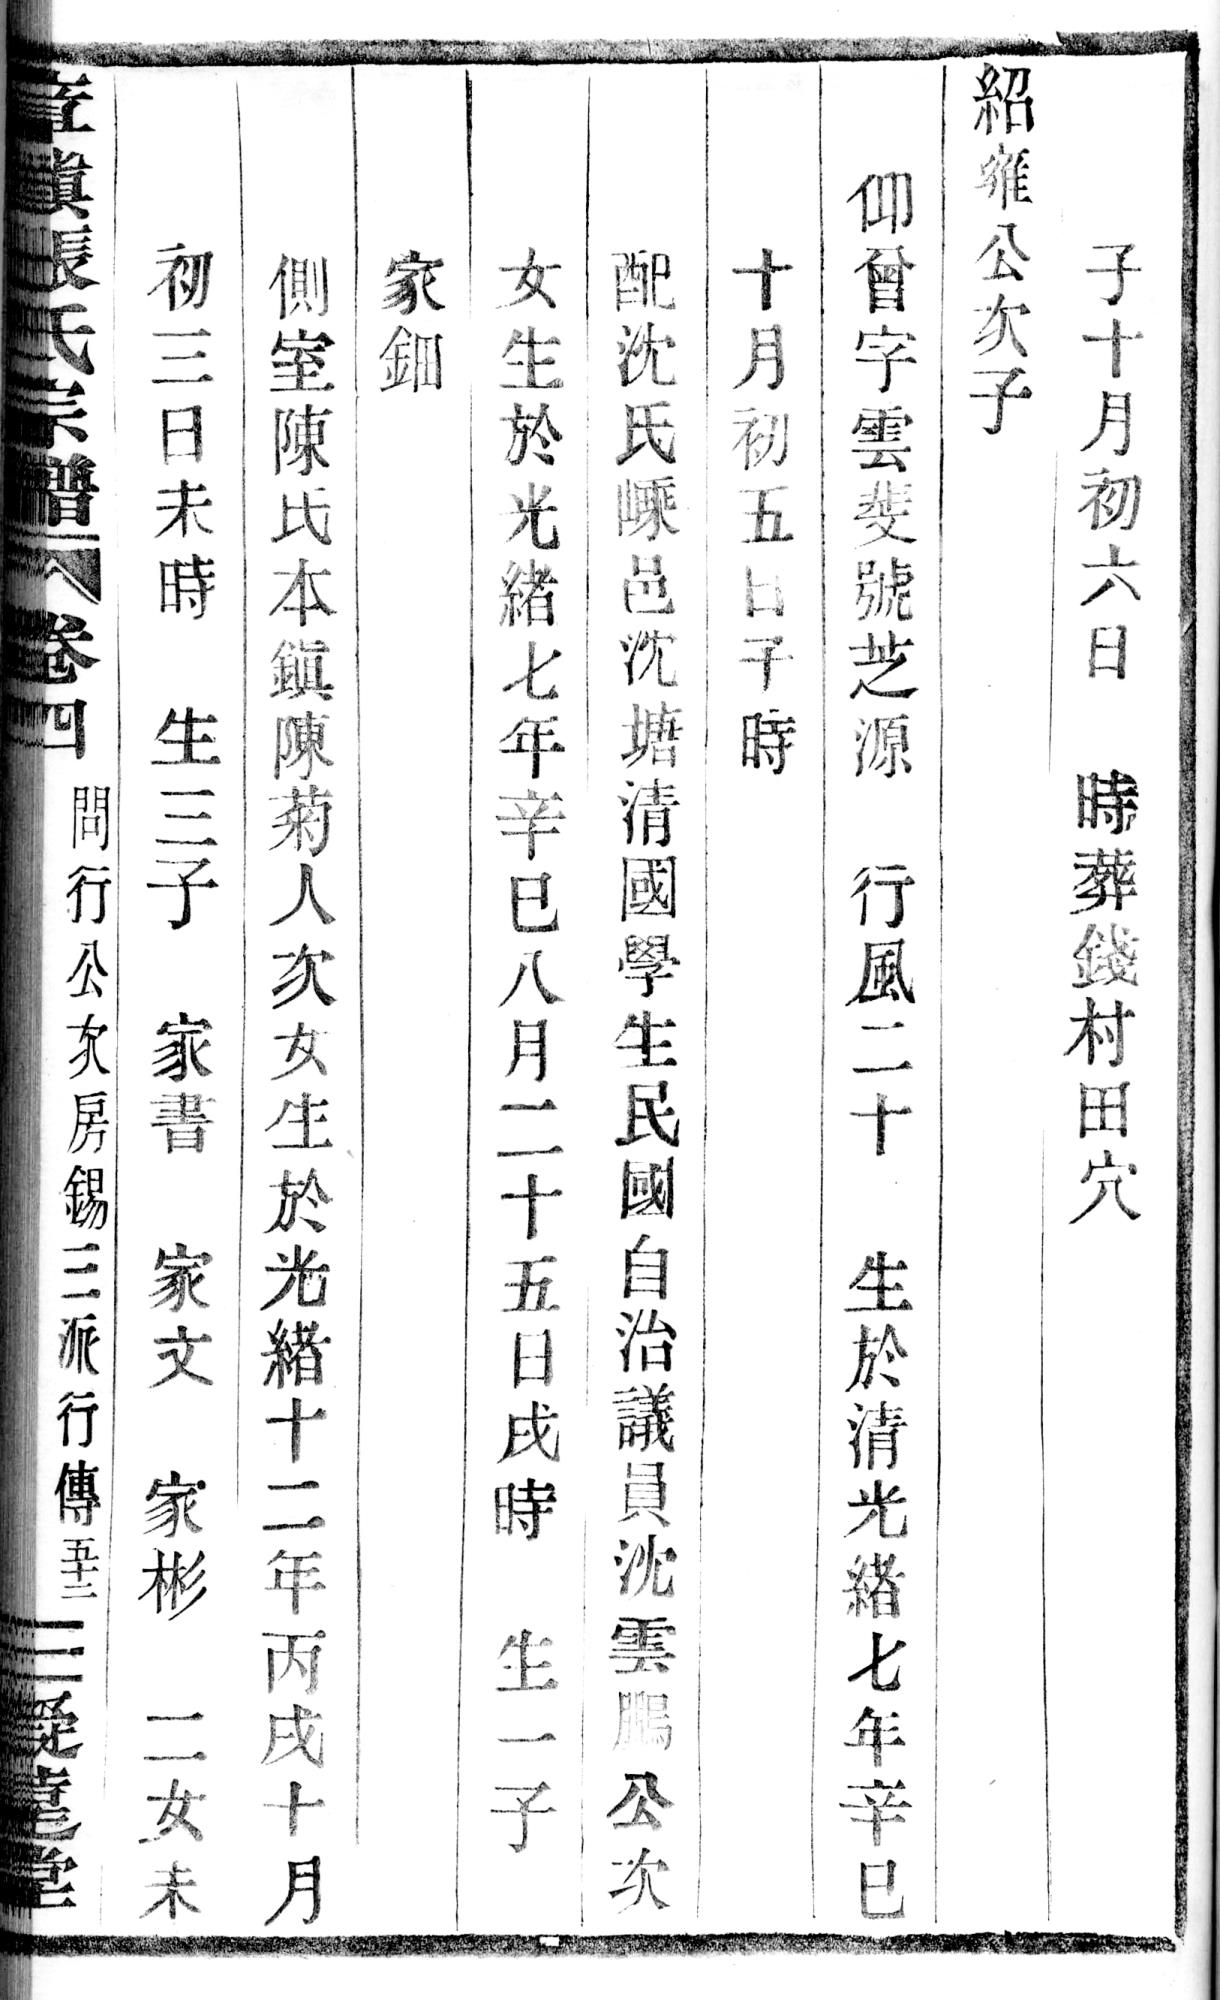 子十月初六日　時葬錢村田穴
紹雍公次子
仰曾字雲斐號芝源　行風二十　生於清光緒七年辛巳
十月初五日子時
配沈氏嵊邑沈塘清國學生民國自治議員沈雲鵬公次
女生於光緒七年辛巳八月二十五日戌時　生一子
家鈿
側室陳氏本鎭陳菊人次女生於光緒十二年丙戌十月
初三日未時　生三子　家書　家文　家彬　二女未
張氏宗譜　卷四　問行公次房錫三派行傳　五十二　三受堂